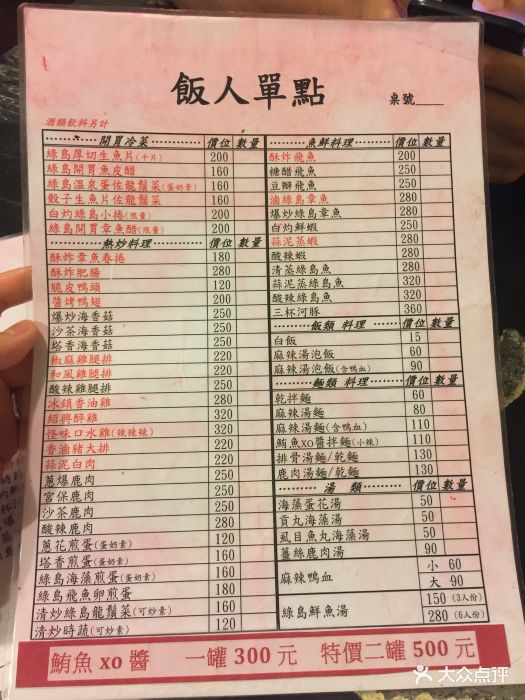 飯人單點
桌號
酒類飲料另計
開胃冷菜 價位 數量
綠島厚切生魚片(十片) 200
綠島開胃魚皮醋 160
綠島溫泉蛋佐龍鬚菜(蛋奶素) 160
骰子生魚片佐龍鬚菜 160
白灼綠島小捲(限量) 200
綠島開胃章魚醋(限量) 160
熱炒料理 價位 數量
酥炸章魚春捲 180
酥炸肥腸 280
脆皮鴨頭 120
醬烤鴨翅 200
爆炒海香菇 250
沙茶海香菇 250
塔香海香菇 250
椒麻雞腿排 220
和風雞腿排 220
酸辣雞腿排 250
冰鎮香油雞 280
紹興醉雞 320
怪味口水雞(辣辣辣) 320
香滷豬大排 220
蒜泥白肉 220
蔥爆鹿肉 250
宮保鹿肉 250
沙茶鹿肉 250
酸辣鹿肉 280
蔥花煎蛋(蛋奶素) 120
塔香煎蛋(蛋奶素) 160
綠島海藻煎蛋(蛋奶素) 160
綠島飛魚卵煎蛋 180
清炒綠島龍鬚菜(可炒素) 160
清炒時蔬(可炒素) 120
魚鮮料理 價位 數量
酥炸飛魚 200
糖醋飛魚 250
豆瓣飛魚 250
滷綠島章魚 280
爆炒綠島章魚 280
白灼鮮蝦 250
蒜泥蒸蝦 280
酸辣蝦 280
清蒸綠島魚 280
蒜泥蒸綠島魚 320
酸辣綠島魚 320
三杯河豚 360
飯類 料理 價位 數量
白飯 15
麻辣湯泡飯 60
麻辣湯泡飯(含鴨血) 90
麵類 料理 價位 數量
乾拌麵 60
麻辣湯麵 80
麻辣湯麵(含鴨血) 110
鮪魚XO醬拌麵(小辣) 110
排骨湯麵/乾麵 130
鹿肉湯麵/乾麵 130
湯 類 價位 數量
海藻蛋花湯 50
貢丸海藻湯 50
虱目魚丸海藻湯 50
薑絲鹿肉湯 90
麻辣鴨血 小 60
大 90
綠島鮮魚湯 150 (3人份)
280 (6人份)
鮪魚 xo 醬 一罐 300 元 特價二罐 500 元
大众点评